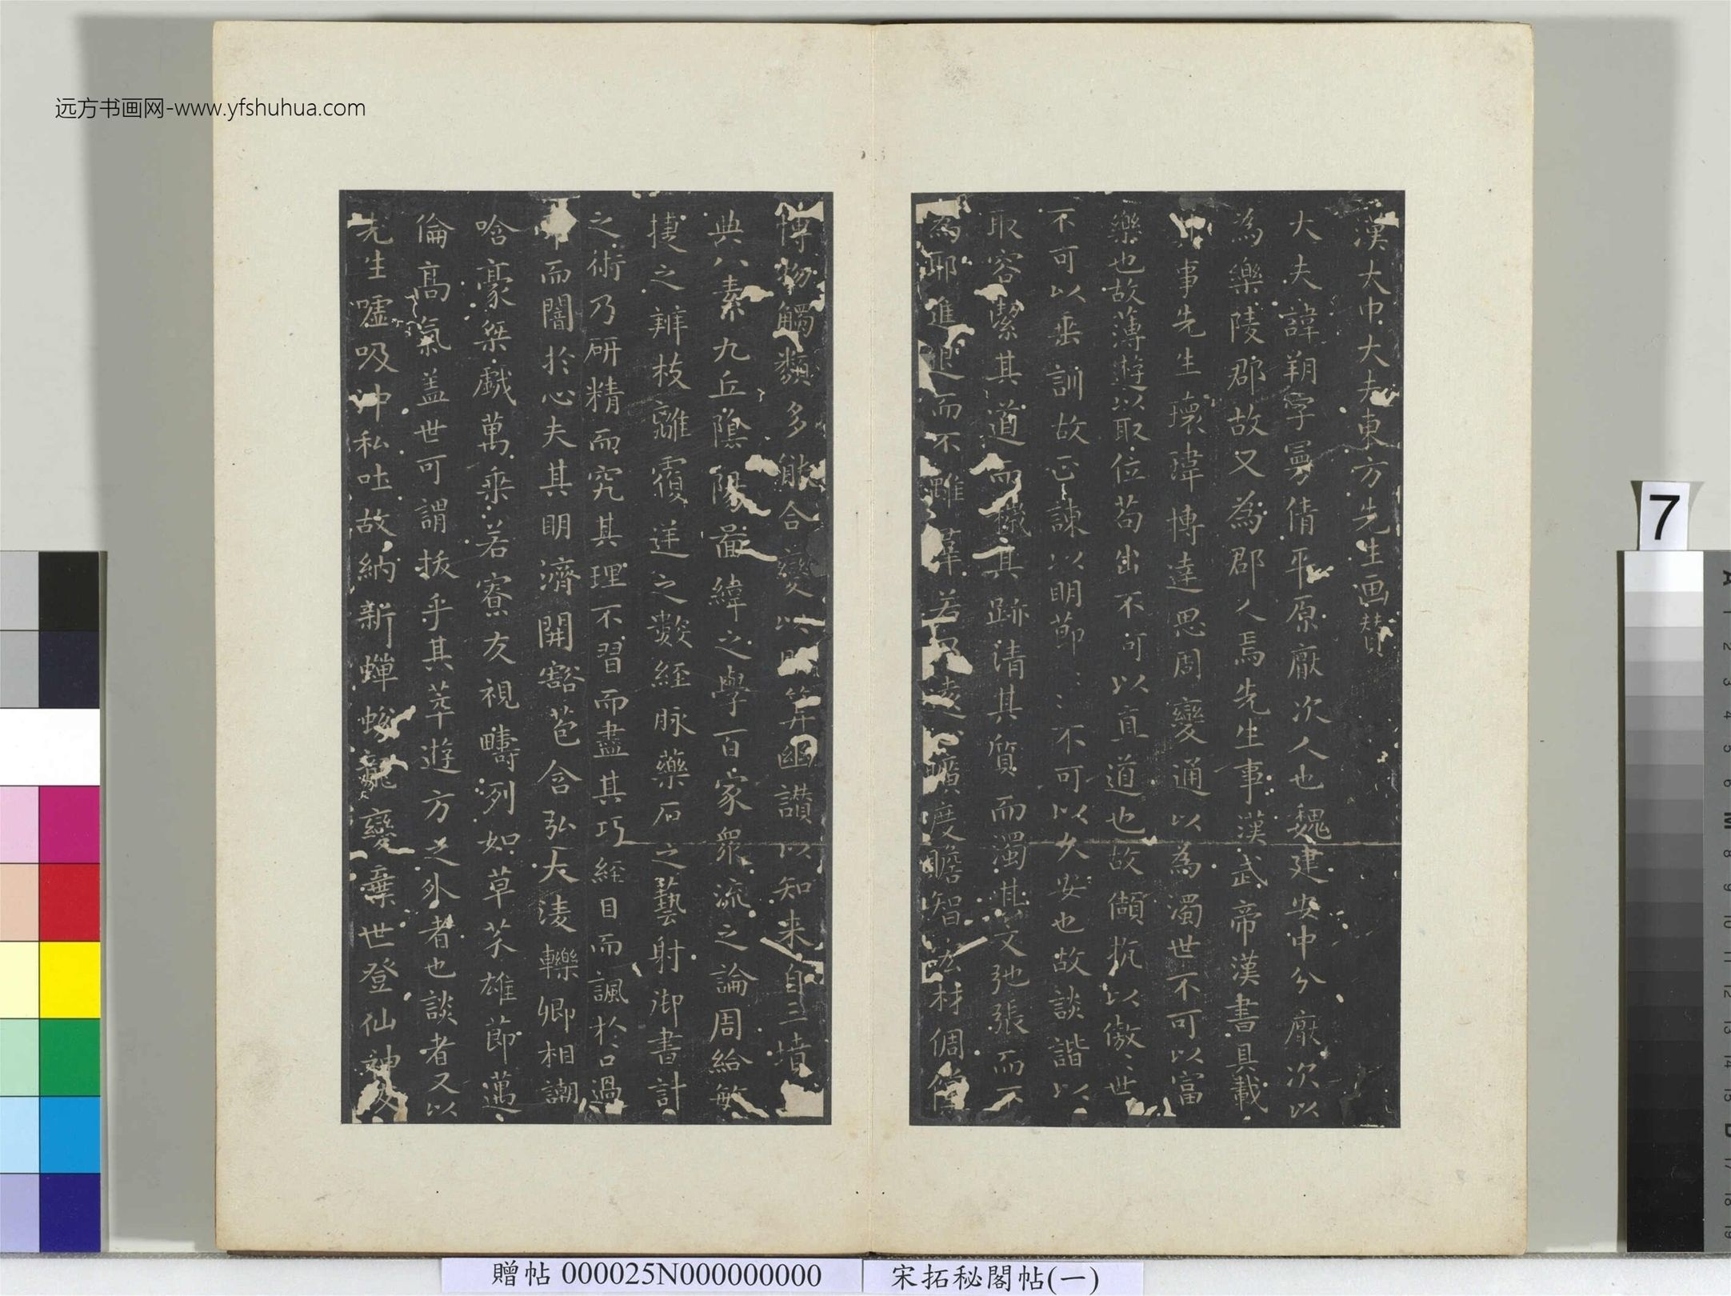 远方书画网-www.yfshuhua.com
漢大中大夫東方先生画賛
大夫諱朔字曼倩平原厭次人也魏建安中分厭次以
為樂陵郡故又為郡人焉先生事漢武帝漢書具載
其事先生瓌瑋博達思周變通以為濁世不可以富
樂也故薄遊以取位苟出不可以直道也故頡抗以傲〻世
不可以垂訓故正諫以明節〻不可以久安也故談諧以
取容潔其道而穢其跡清其質而濁其文弛張而不
為耶進退而不離群若乃遠心曠度贍智宏材倜儻
博物觸類多能合變以明筭幽讃以知来自三墳
典八素九丘陰陽圖緯之學百家衆流之論周給敏
捷之辨枝離覆逆之數経脉藥石之藝射御書計
之術乃研精而究其理不習而盡其巧経目而諷於口過
耳而闇於心夫其明濟開豁苞含弘大淩轢卿相謿
哈豪桀戲萬乘若寮友視疇列如草芥雄節邁
倫高氣盖世可謂拔乎其萃遊方之外者也談者又以
先生噓吸沖和吐故納新蟬蛻龍變棄世登仙神交
7
贈帖 000025N000000000
宋拓秘閣帖(一)